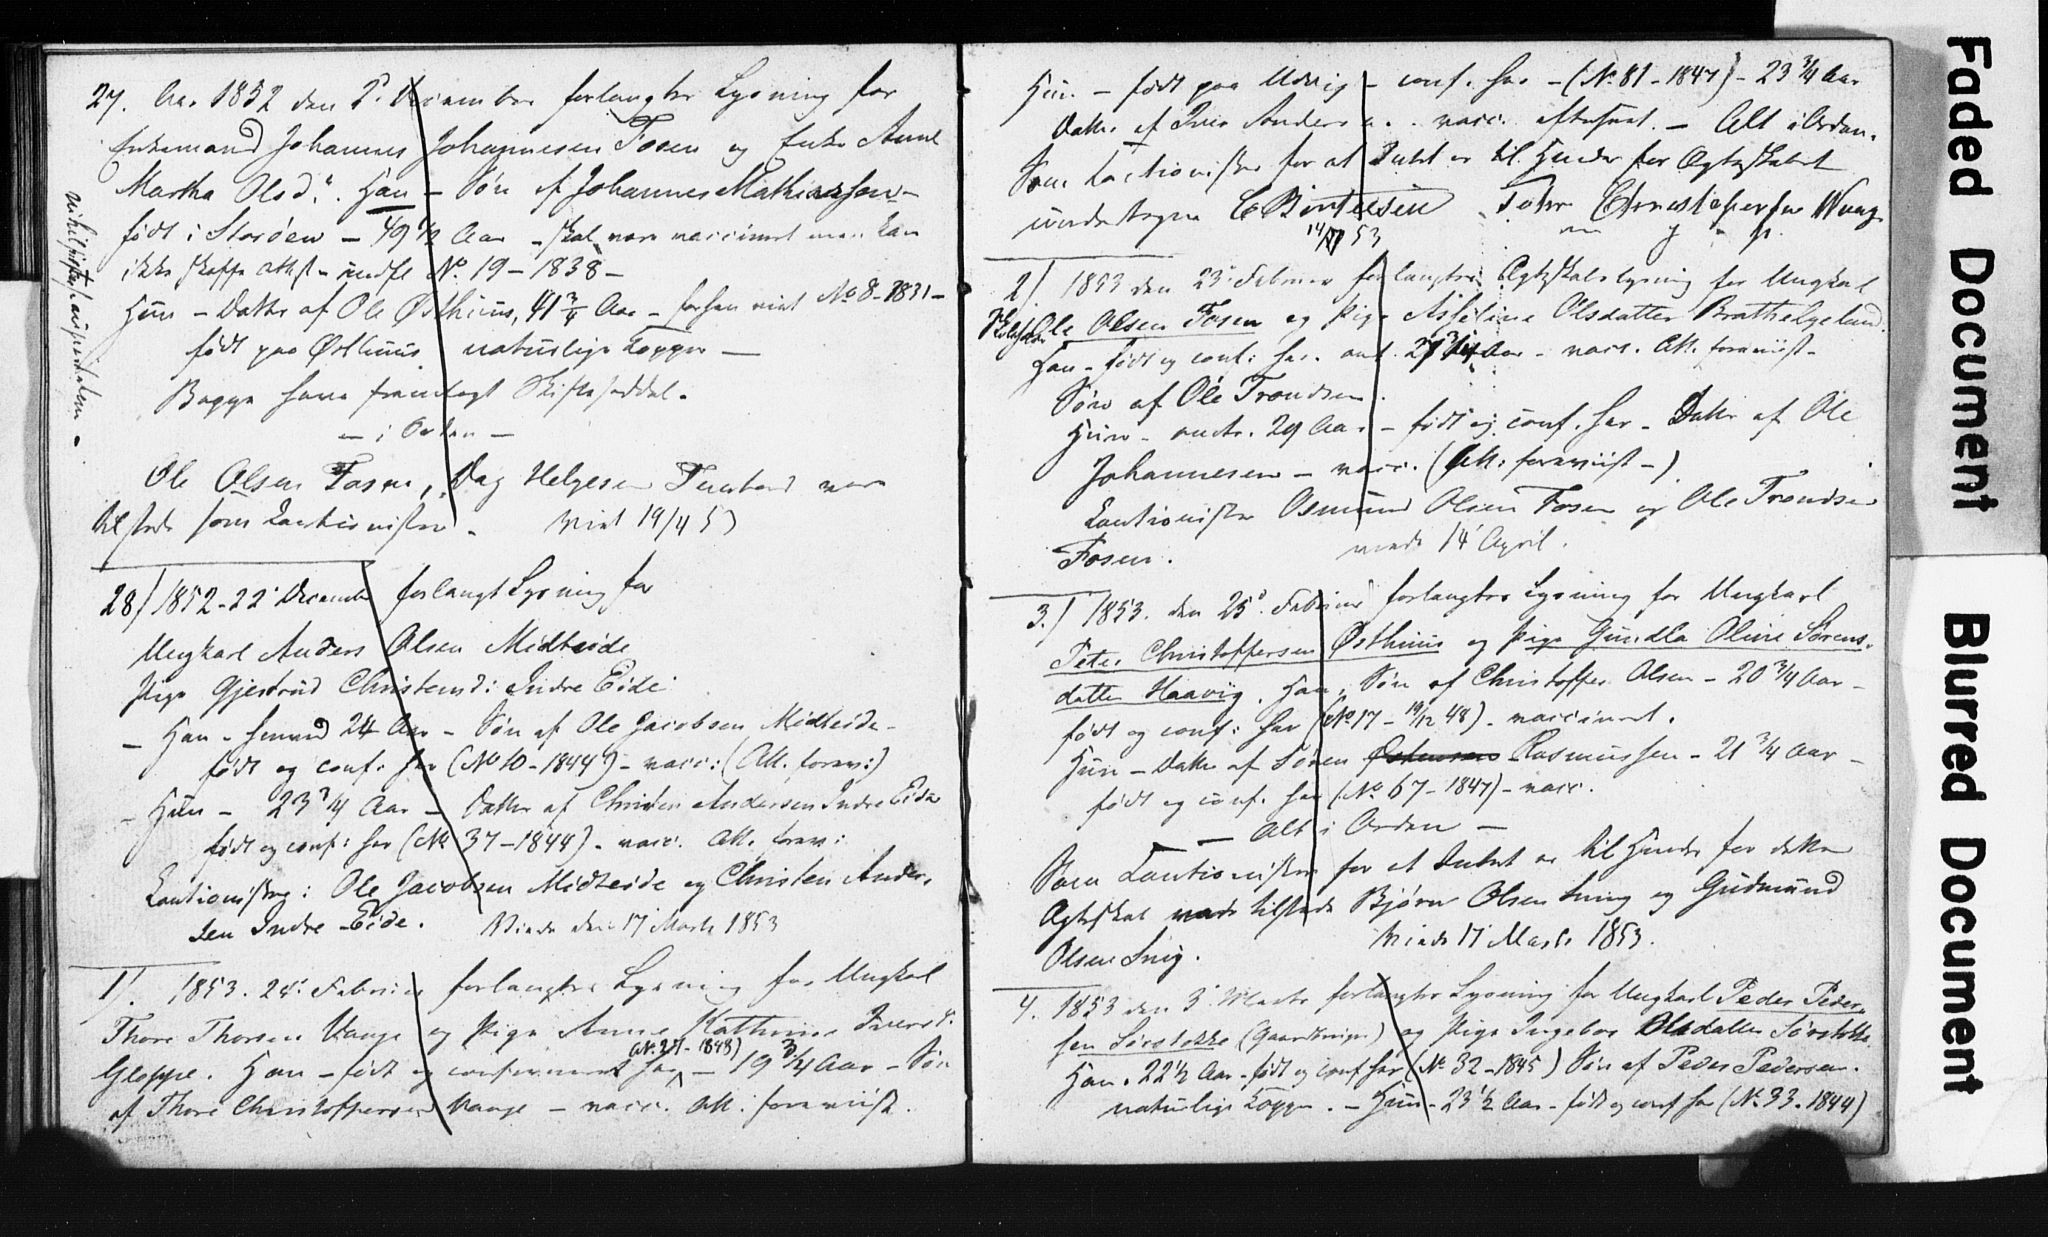 27. Aar 1852 den 2. December forlangtes Lysning for
Enkemand Johannes Johannesen Fosen og Enke Anne
Martha Olsd. Han – Søn af Johannes Mathiassen –
født i Storöen – 49 1/2 Aar – skal være vaccineret men kan
ikke skaffe Attest – indfl No. 19 – 1838 –
Hun – Datter af Ole Østhuus, 41 3/4 Aar – forhen viet No 8 – 1831 –
født paa Østhuus naturlige Kopper –
Begge have fremlagt Skifteseddel.
– i Orden –
Ole Olsen Fosen, Dag Helgesen vare
tilstede som Cautionister. Viet 19/4 53
28) 1852 – 22 December forlangt Lysning for
Ungkarl Anders Olsen Midteide
Pige Gjertrud Christensd: Indre Eide.
– Han – 24 Aar – Søn af Ole Jacobsen Midteide –
født og conf: her (No 10 – 1844) – vacc: (Att. forev:)
– Hun – 23 3/4 Aar – Datter af Christen Andersen Indre Eide
født og conf: her (No 37 – 1844) – vacc. Att. forev:
Cautionister: Ole Jacobsen Midteide og Christen Ander-
sen Indre Eide. Viede den 17 Marts 1853
1). 1853. 24. Februar forlangtes Lysning for Ungkarl
Thore Thorsen Vaage og Pige Anne Kathrine Iversd.
Gloppe. Han – født og confirmeret her (No. 27 – 1848) – 19 3/4 Aar – Søn
af Thore Christoffersen Vaage – vacc. Att. foreviist.
Hun – født paa – conf. her – (No. 81 – 1847) – 23 3/4 Aar
Datter af Iver Andersen. vacc. – Alt i Orden.
Som Cautionister for at Intet er til Hinder for Ægteskabet
undertegne E Bertelsen Tohre Christophersen Waage
14/4 53
2) 1853 den 23. Februar forlangtes Ægteskabslysning for Ungkarl
Ole Olsen Fosen og Pige Olsdatter Bratthelgeland.
Han – født og conf: her. Aar – vacc. Att. foreviist –
Søn af Ole Trondsen.
Hun – 29 Aar – født og conf. her – Datter af Ole
Johannesen – vacc. (Att: foreviist –)
Cautionister Osmund Olsen Fosen og Ole Trondsen
Fosen. viede 14 April.
3.) 1853. den 25. Februar forlangtes Lysning for Ungkarl
Peter Christoffersen Østhuus og Pige Gundla Oline Sørens-
datter Haavig. Han, Søn af Christoffer Olsen – 20 3/4 Aar –
født og conf: her (No 17 – 19/12 48) – vaccineret.
Hun – Datter af Søren Rasmussen – 21 3/4 Aar –
født og conf. her (No 67 – 1847) – vacc.
– Alt i Orden –
Som Cautionister for at Intet er til Hinder for dette
Ægteskab vare tilstede Bjørn Olsen Snig og Gudmund
Olsen Snig. Viede 17 Marts 1853.
4. 1853 den 3 Marts forlangtes Lysning for Ungkarl Peder Peder-
sen Sørstokke (Gaardbruger) og Pige Ingebor Olsdatter Sørstokke
Han – 22 1/2 Aar – født og conf her (No 32 – 1845) Søn af Peder Pedersen.
naturlige Kopper. – Hun – 23 1/2 Aar – født og conf her (No. 33. 1844)
Faded Document
Blurred Document